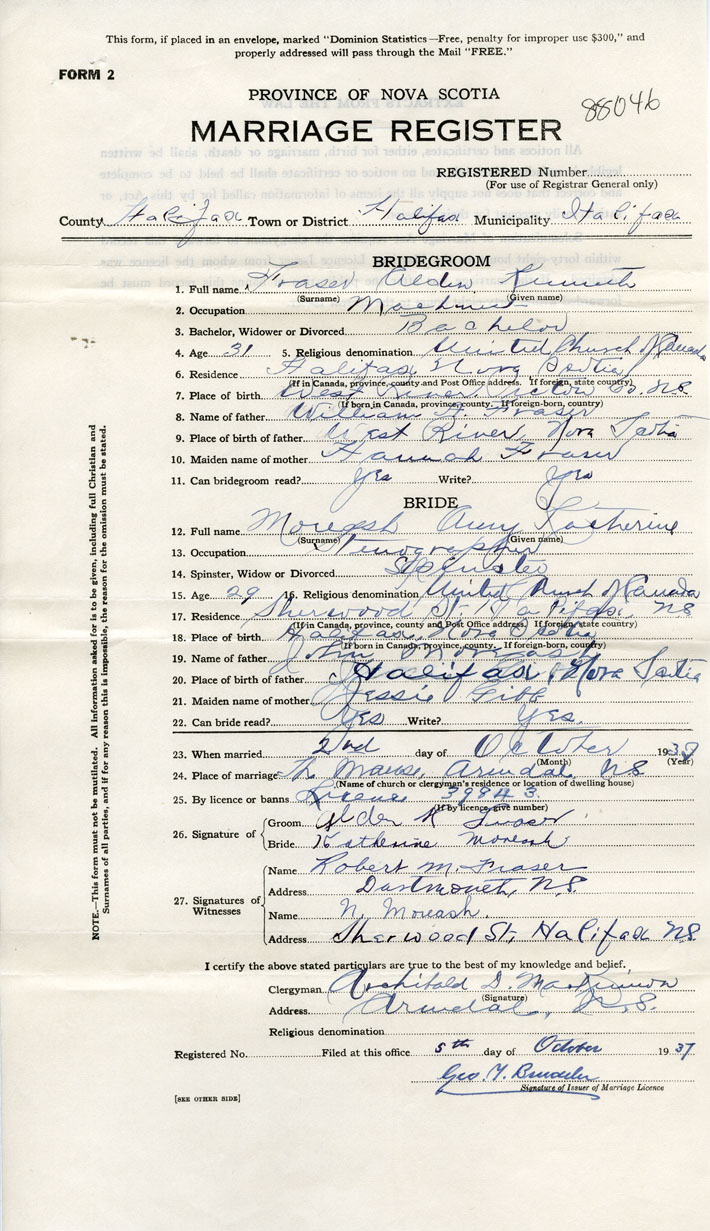 This form, if placed in an envelope, marked "Dominion Statistics—Free, penalty for improper use $300," and
properly addressed will pass through the Mail "FREE."
FORM 2
PROVINCE OF NOVA SCOTIA
88046
MARRIAGE REGISTER
REGISTERED Number
(For use of Registrar General only)
County Halifax Town or District Halifax Municipality Halifax
BRIDEGROOM
1. Full name Fraser Alden Kenneth
(Surname) (Given name)
2. Occupation Machinist
3. Bachelor, Widower or Divorced Bachelor
4. Age 31 5. Religious denomination United Church of Canada
6. Residence Halifax Nova Scotia
(If in Canada, province, county and Post Office address. If foreign, state country)
7. Place of birth West River Co. N.S.
(If born in Canada, province, county. If foreign-born, country)
8. Name of father William Fraser
9. Place of birth of father West River, Nova Scotia
10. Maiden name of mother Hannah Fraser
11. Can bridegroom read? Yes Write? Yes
BRIDE
12. Full name Moreash Amy Katherine
(Surname) (Given name)
13. Occupation Stenographer
14. Spinster, Widow or Divorced Spinster
15. Age 29 16. Religious denomination United Church of Canada
17. Residence Sherwood St. Halifax, N.S.
(If in Canada, province, county and Post Office address. If foreign, state country)
18. Place of birth Halifax, Nova Scotia
(If born in Canada, province, county. If foreign-born, country)
19. Name of father John Moreash
20. Place of birth of father Halifax, Nova Scotia
21. Maiden name of mother Jessie Gibb
22. Can bride read? Yes Write? Yes.
23. When married 2nd day of October 1938
(Month) (Year)
24. Place of marriage The Manse, N.S.
(Name of church or clergyman's residence or location of dwelling house)
25. By licence or banns License 39943
(If by licence give number)
26. Signature of
Groom Alden K Fraser
Bride Katherine Moreash
27. Signatures of Witnesses
Name Robert M. Fraser
Address Dartmouth, N.S.
Name N. Moreash.
Address Sherwood St, Halifax N.S.
I certify the above stated particulars are true to the best of my knowledge and belief.
Clergyman Archibald D. MacKinnon
(Signature)
Address N.S.
Religious denomination
Registered No. Filed at this office 5th day of October 1937
Geo. T.
Signature of Issuer of Marriage Licence
[SEE OTHER SIDE]
NOTE.—This form must not be mutilated. All information asked for is to be given, including full Christian and
Surnames of all parties, and if for any reason this is impossible, the reason for the omission must be stated.